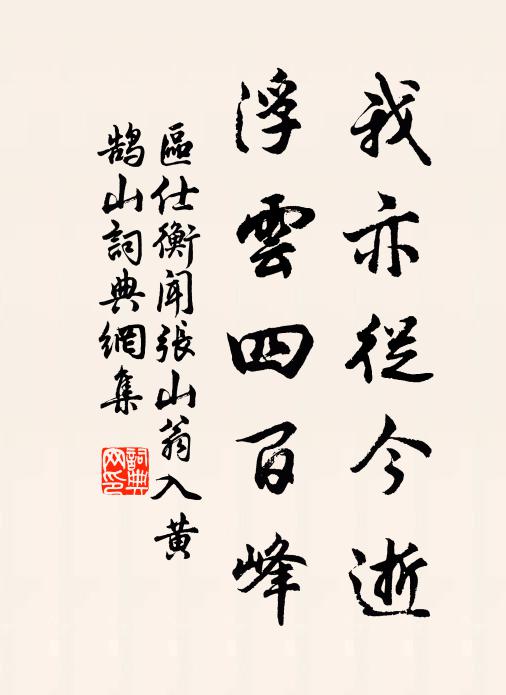 我亦從今逝
浮雲四百峰
區仕衡聞張山翁入黃
鵠山詞典網集
詞典
网印